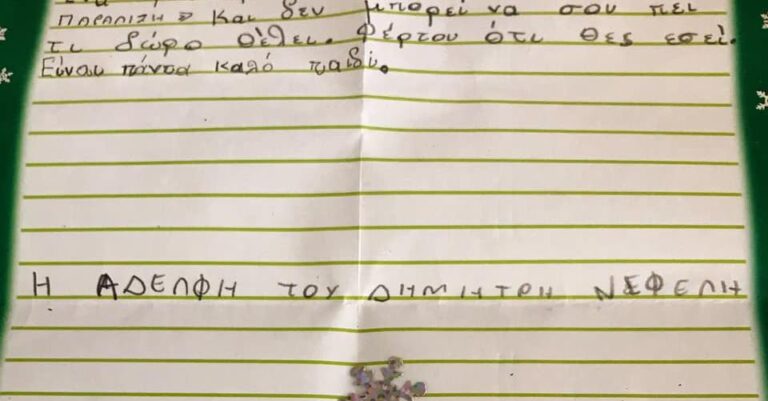 παραλιση » και δεν μπορεί να σου πει
τι δώρο θέλει. Φέρτου ότι θες εσεί.
Είναι πάντα καλό παιδί.
Η ΑΔΕΛΦΗ ΤΟΥ ΔΗΜΗΤΡΗ ΝΕΦΕΛΗ